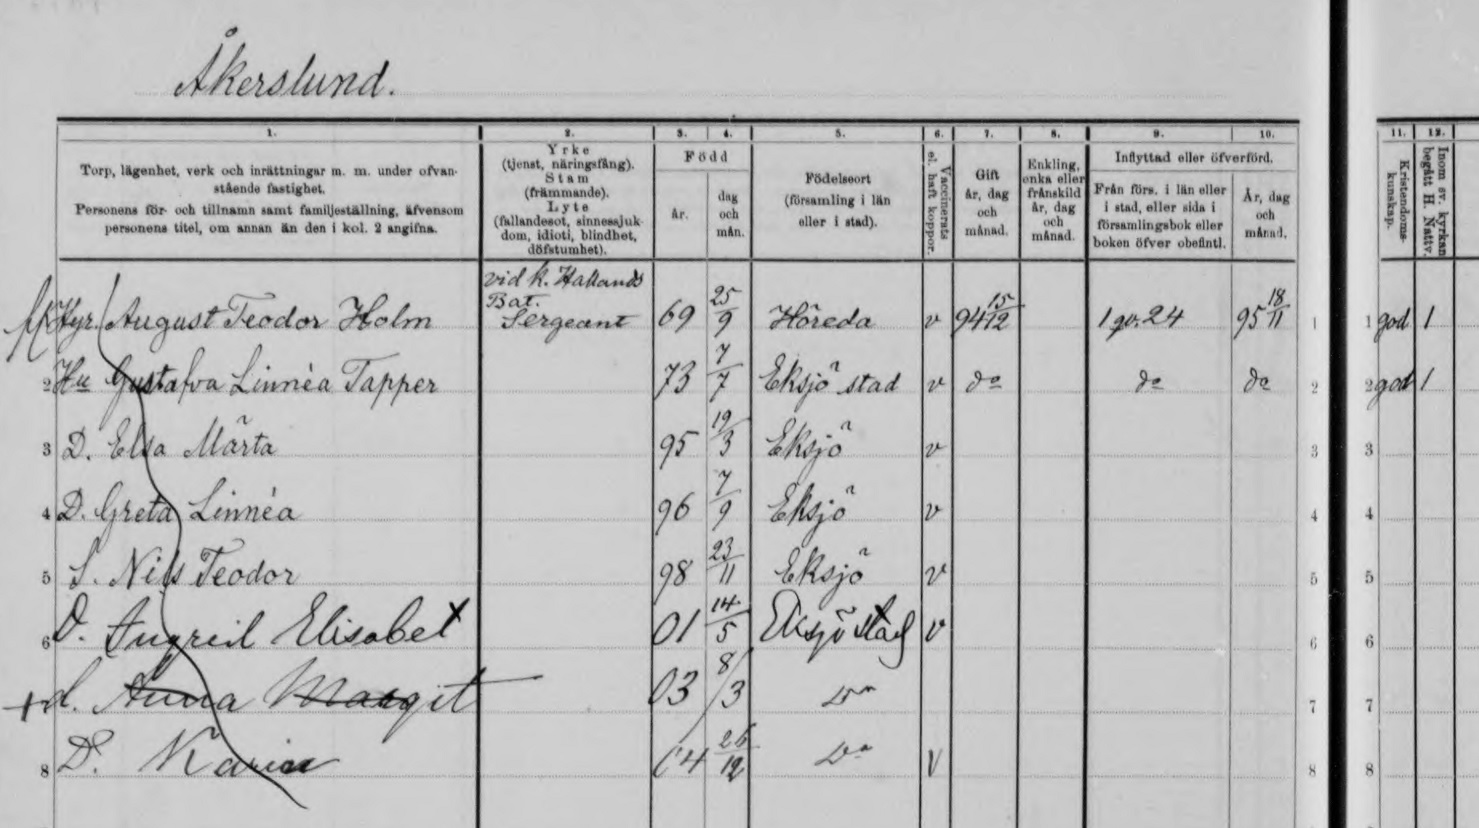 Åkerslund.
1. 2. 3. 4. 5. 6. 7. 8. 9. 10. 11. 12.
Torp, lägenhet, verk och inrättningar m. m. under ofvan-
stående fastighet.
Personens för- och tillnamn samt familjeställning, äfvensom
personens titel, om annan än den i kol. 2 angifna.
Yrke
(tjenst, näringsfång).
Stam
(främmande).
Lyte
(fallandesot, sinnessjuk-
dom, idioti, blindhet,
döfstumhet).
Född
år.
dag
och
mån.
Födelseort
(församling i län
eller i stad).
Vaccinerats
el. haft koppor.
Gift
år, dag
och
månad.
Enkling,
enka eller
frånskild
år, dag
och
månad.
Inflyttad eller öfverförd.
Från förs. i län eller
i stad, eller sida i
församlingsbok eller
boken öfver obefintl.
År, dag
och
månad.
Kristendoms-
kunskap.
Inom sv. kyrkan
begått H. Nattv.
vid k. Hallands
Bat.
Hyr. August Teodor Holm Sergeant 69 25/9 Höreda v 94 15/12 1 gv. 24 95 18/11 1 1 god 1
2 Hu Gustafva Linnéa Tapper 73 7/7 Eksjö stad v do do do 2 2 god 1
3 D. Elsa Märta 95 19/3 Eksjö v 3 3
4 D. Greta Linnéa 96 7/9 Eksjö v 4 4
5 S. Nils Teodor 98 23/11 Eksjö v 5 5
6 D. Ingrid Elisabet 01 14/5 Eksjö stad v 6 6
+ d. Anna Margit 03 8/3 Do 7 7
8 D. Karin 04 26/12 Do v 8 8